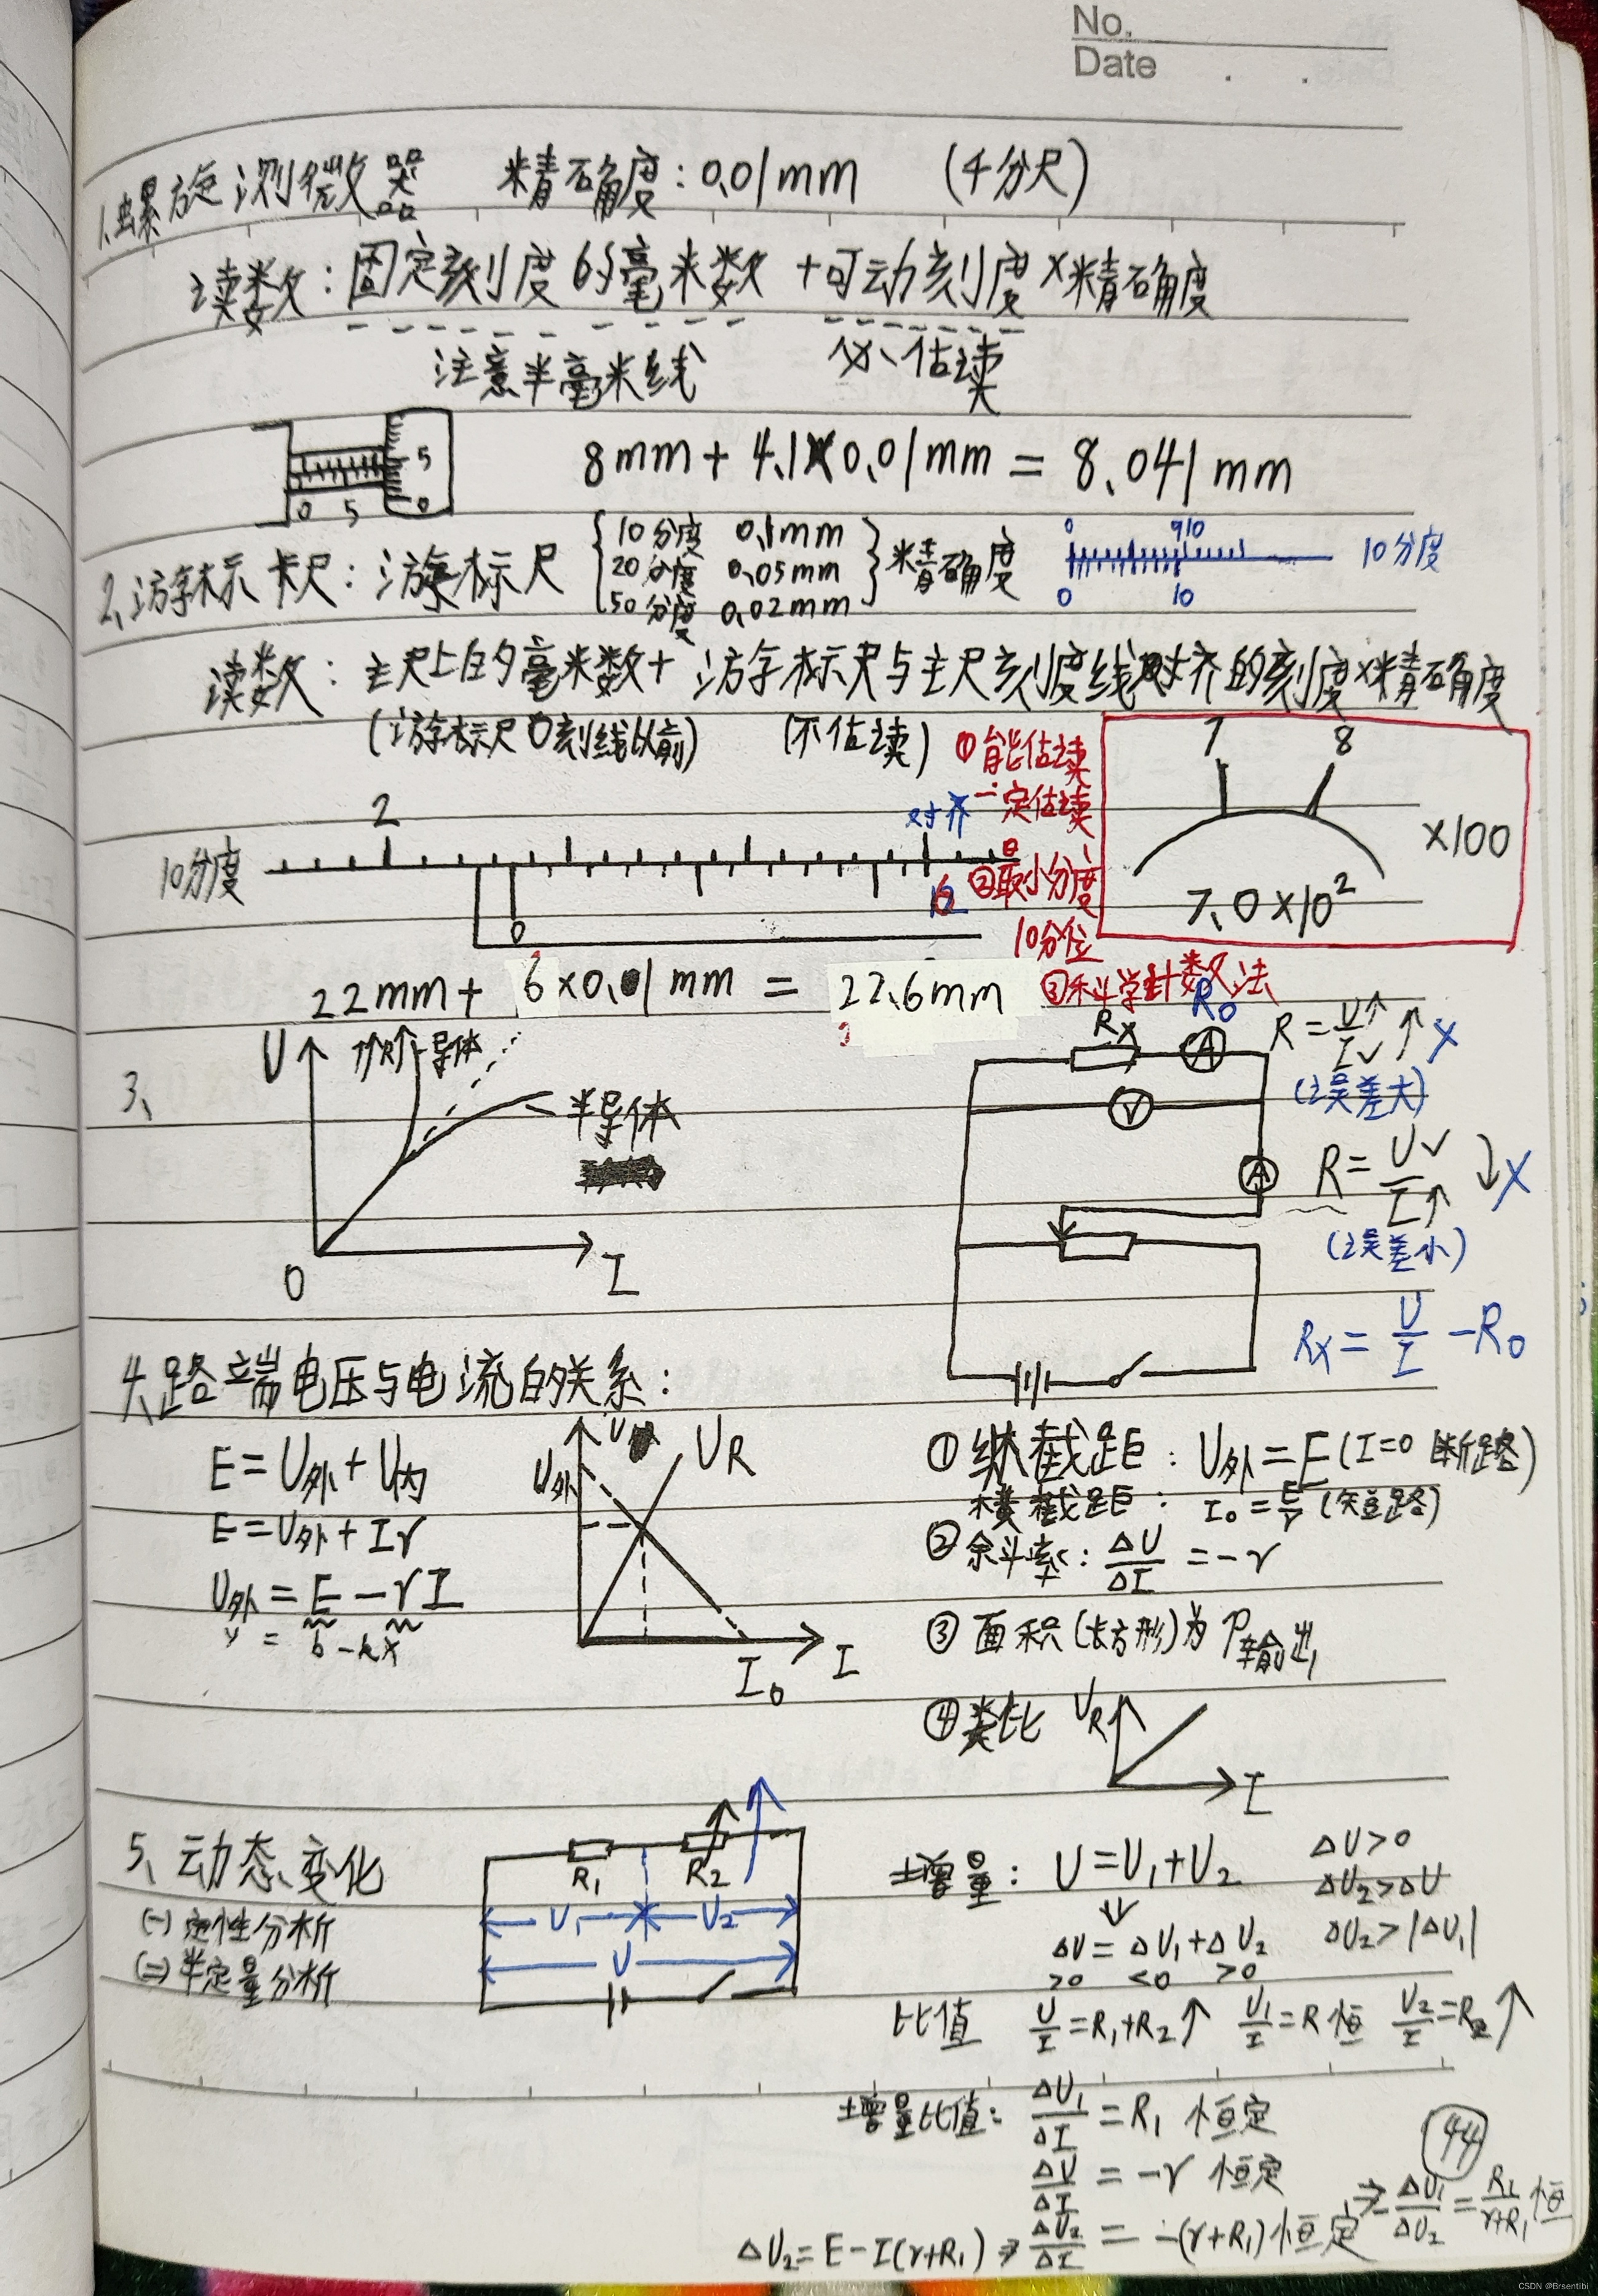 No.
Date
1.螺旋测微器 精确度：0.01mm （千分尺）
读数：固定刻度的毫米数+可动刻度×精确度
注意半毫米线 必估读
5
0 5 0
8mm+4.1×0.01mm=8.041mm
2.游标卡尺：游标尺
10分度 0.1mm
20分度 0.05mm
50分度 0.02mm
精确度
0 9 10
0 10
10分度
读数：主尺上的毫米数+游标尺与主尺刻度线对齐的刻度×精确度
（游标尺0刻线以前） （不估读）
①能估读
一定估读
②最小分度
10分位
③科学计数法
7 8
×100
7.0×10²
2
对齐
10分度
0
22mm+6×0.01mm=22.6mm
3、
U
导体
半导体
0 I
Rx A R0
V
A
R=U↑/I✓ ↑ ×
（误差大）
R=U✓/I↑ ×
（误差小）
Rx=U/I-R0
4.路端电压与电流的关系：
E=U外+U内
E=U外+Ir
U外=E-rI
y=b-kx
U外 U UR
I0 I
①纵截距：U外=E(I=0 断路)
横截距：I0=E/r (短路)
②斜率：ΔU/ΔI=-r
③面积(长方形)为P输出
④类比 UR
I
5、动态变化
(一)定性分析
(二)半定量分析
R1 R2
U1 U2
U
增量：U=U1+U2 ΔU>0
ΔU2>ΔU
ΔU=ΔU1+ΔU2 ΔU2>|ΔU1|
>0 <0 >0
比值 U/I=R1+R2↑ U1/I=R恒 U2/I=R2↑
增量比值：ΔU1/ΔI=R1 恒定
ΔU/ΔI=-r 恒定
ΔU2=E-I(r+R1)⇒ΔU2/ΔI=-(r+R1)恒定⇒-ΔU1/ΔU2=R1/r+R1恒
44
CSDN @Brsentibi